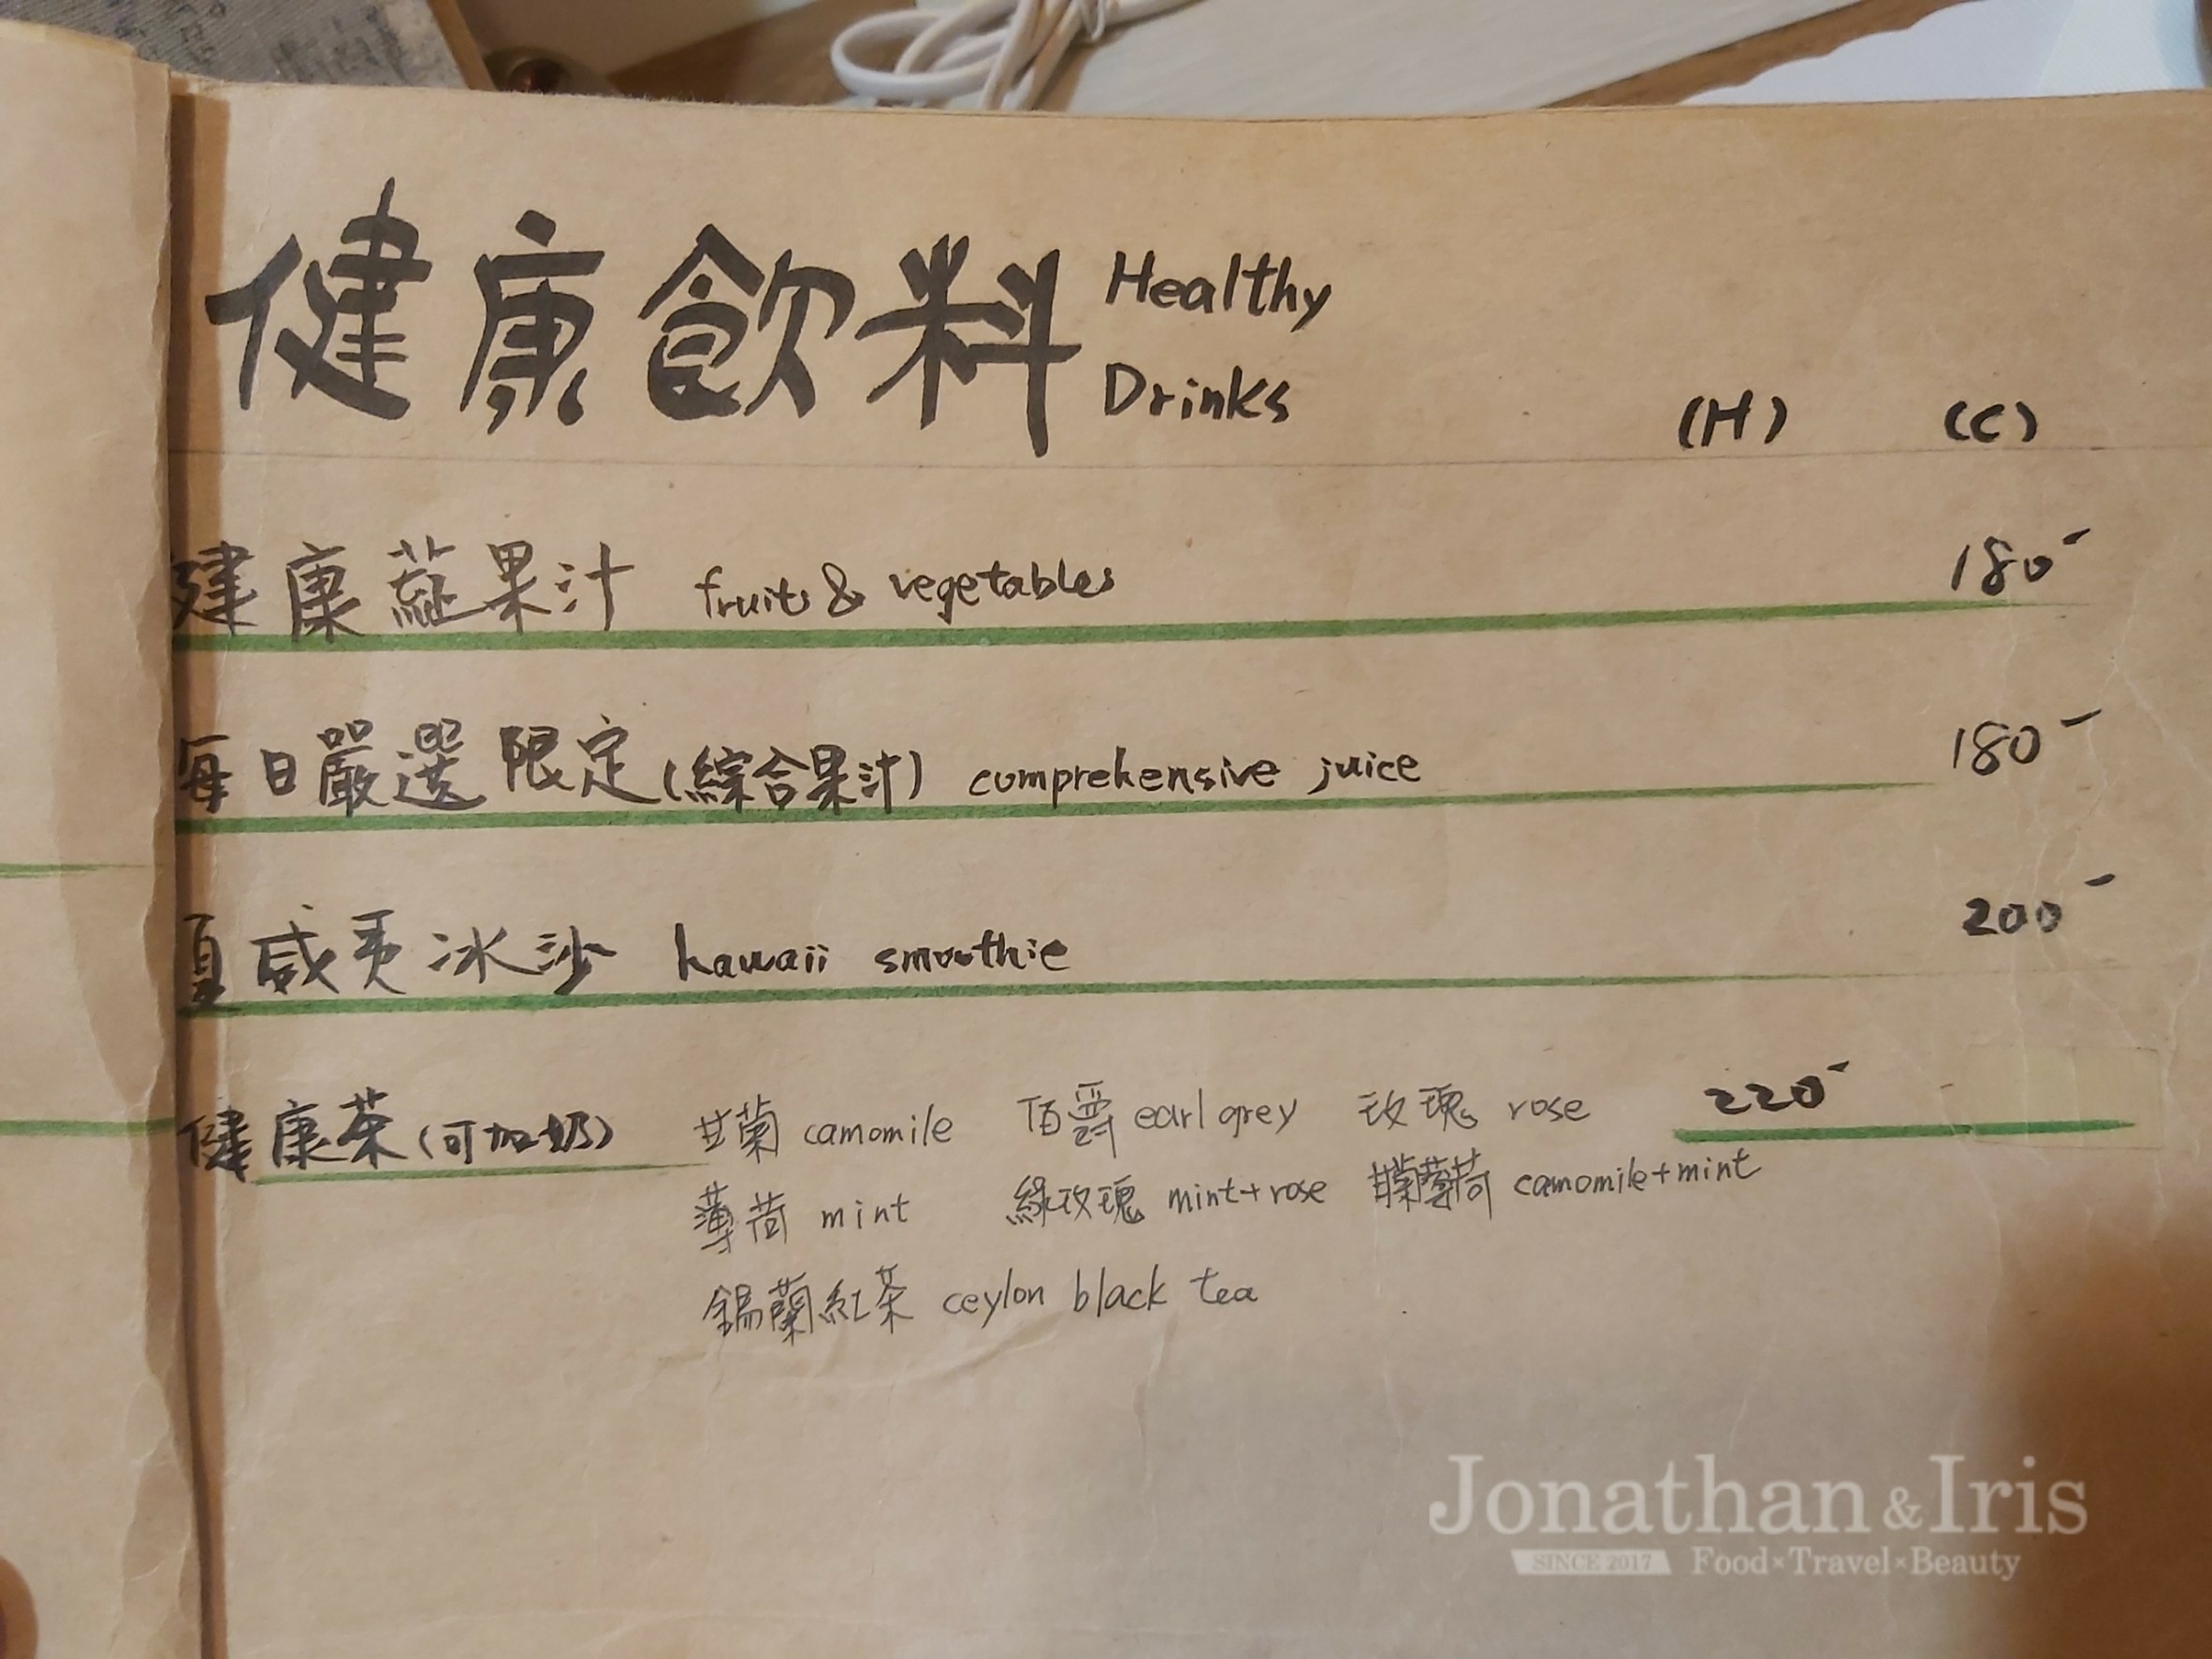 健康飲料 Healthy Drinks (H) (C)
健康蔬果汁 fruits & vegetables 180-
每日嚴選限定(綜合果汁) comprehensive juice 180-
夏威夷冰沙 hawaii smoothie 200-
健康茶(可加奶) 甘菊 camomile 佰爵 earl grey 玫瑰 rose 220-
薄荷 mint 綠玫瑰 mint+rose 甘菊薄荷 camomile+mint
錫蘭紅茶 ceylon black tea
Jonathan & Iris
SINCE 2017 Food×Travel×Beauty